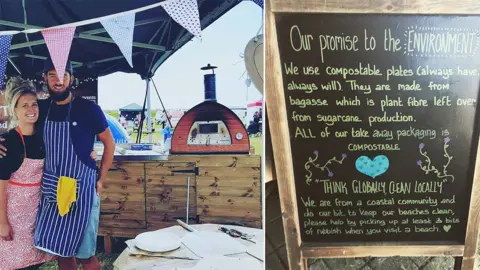 Our promise to the ENVIRONMENT
We use compostable plates (always have
always will) They are made from
bagasse which is plant fibre left over
from sugarcane production.
ALL of our take away packaging is
COMPOSTABLE
"THINK GLOBALLY, CLEAN LOCALLY"
We are from a coastal community and
do our bit to keep our beaches clean,
please help by picking up at least 3 bits
of rubbish when you visit a beach ♡